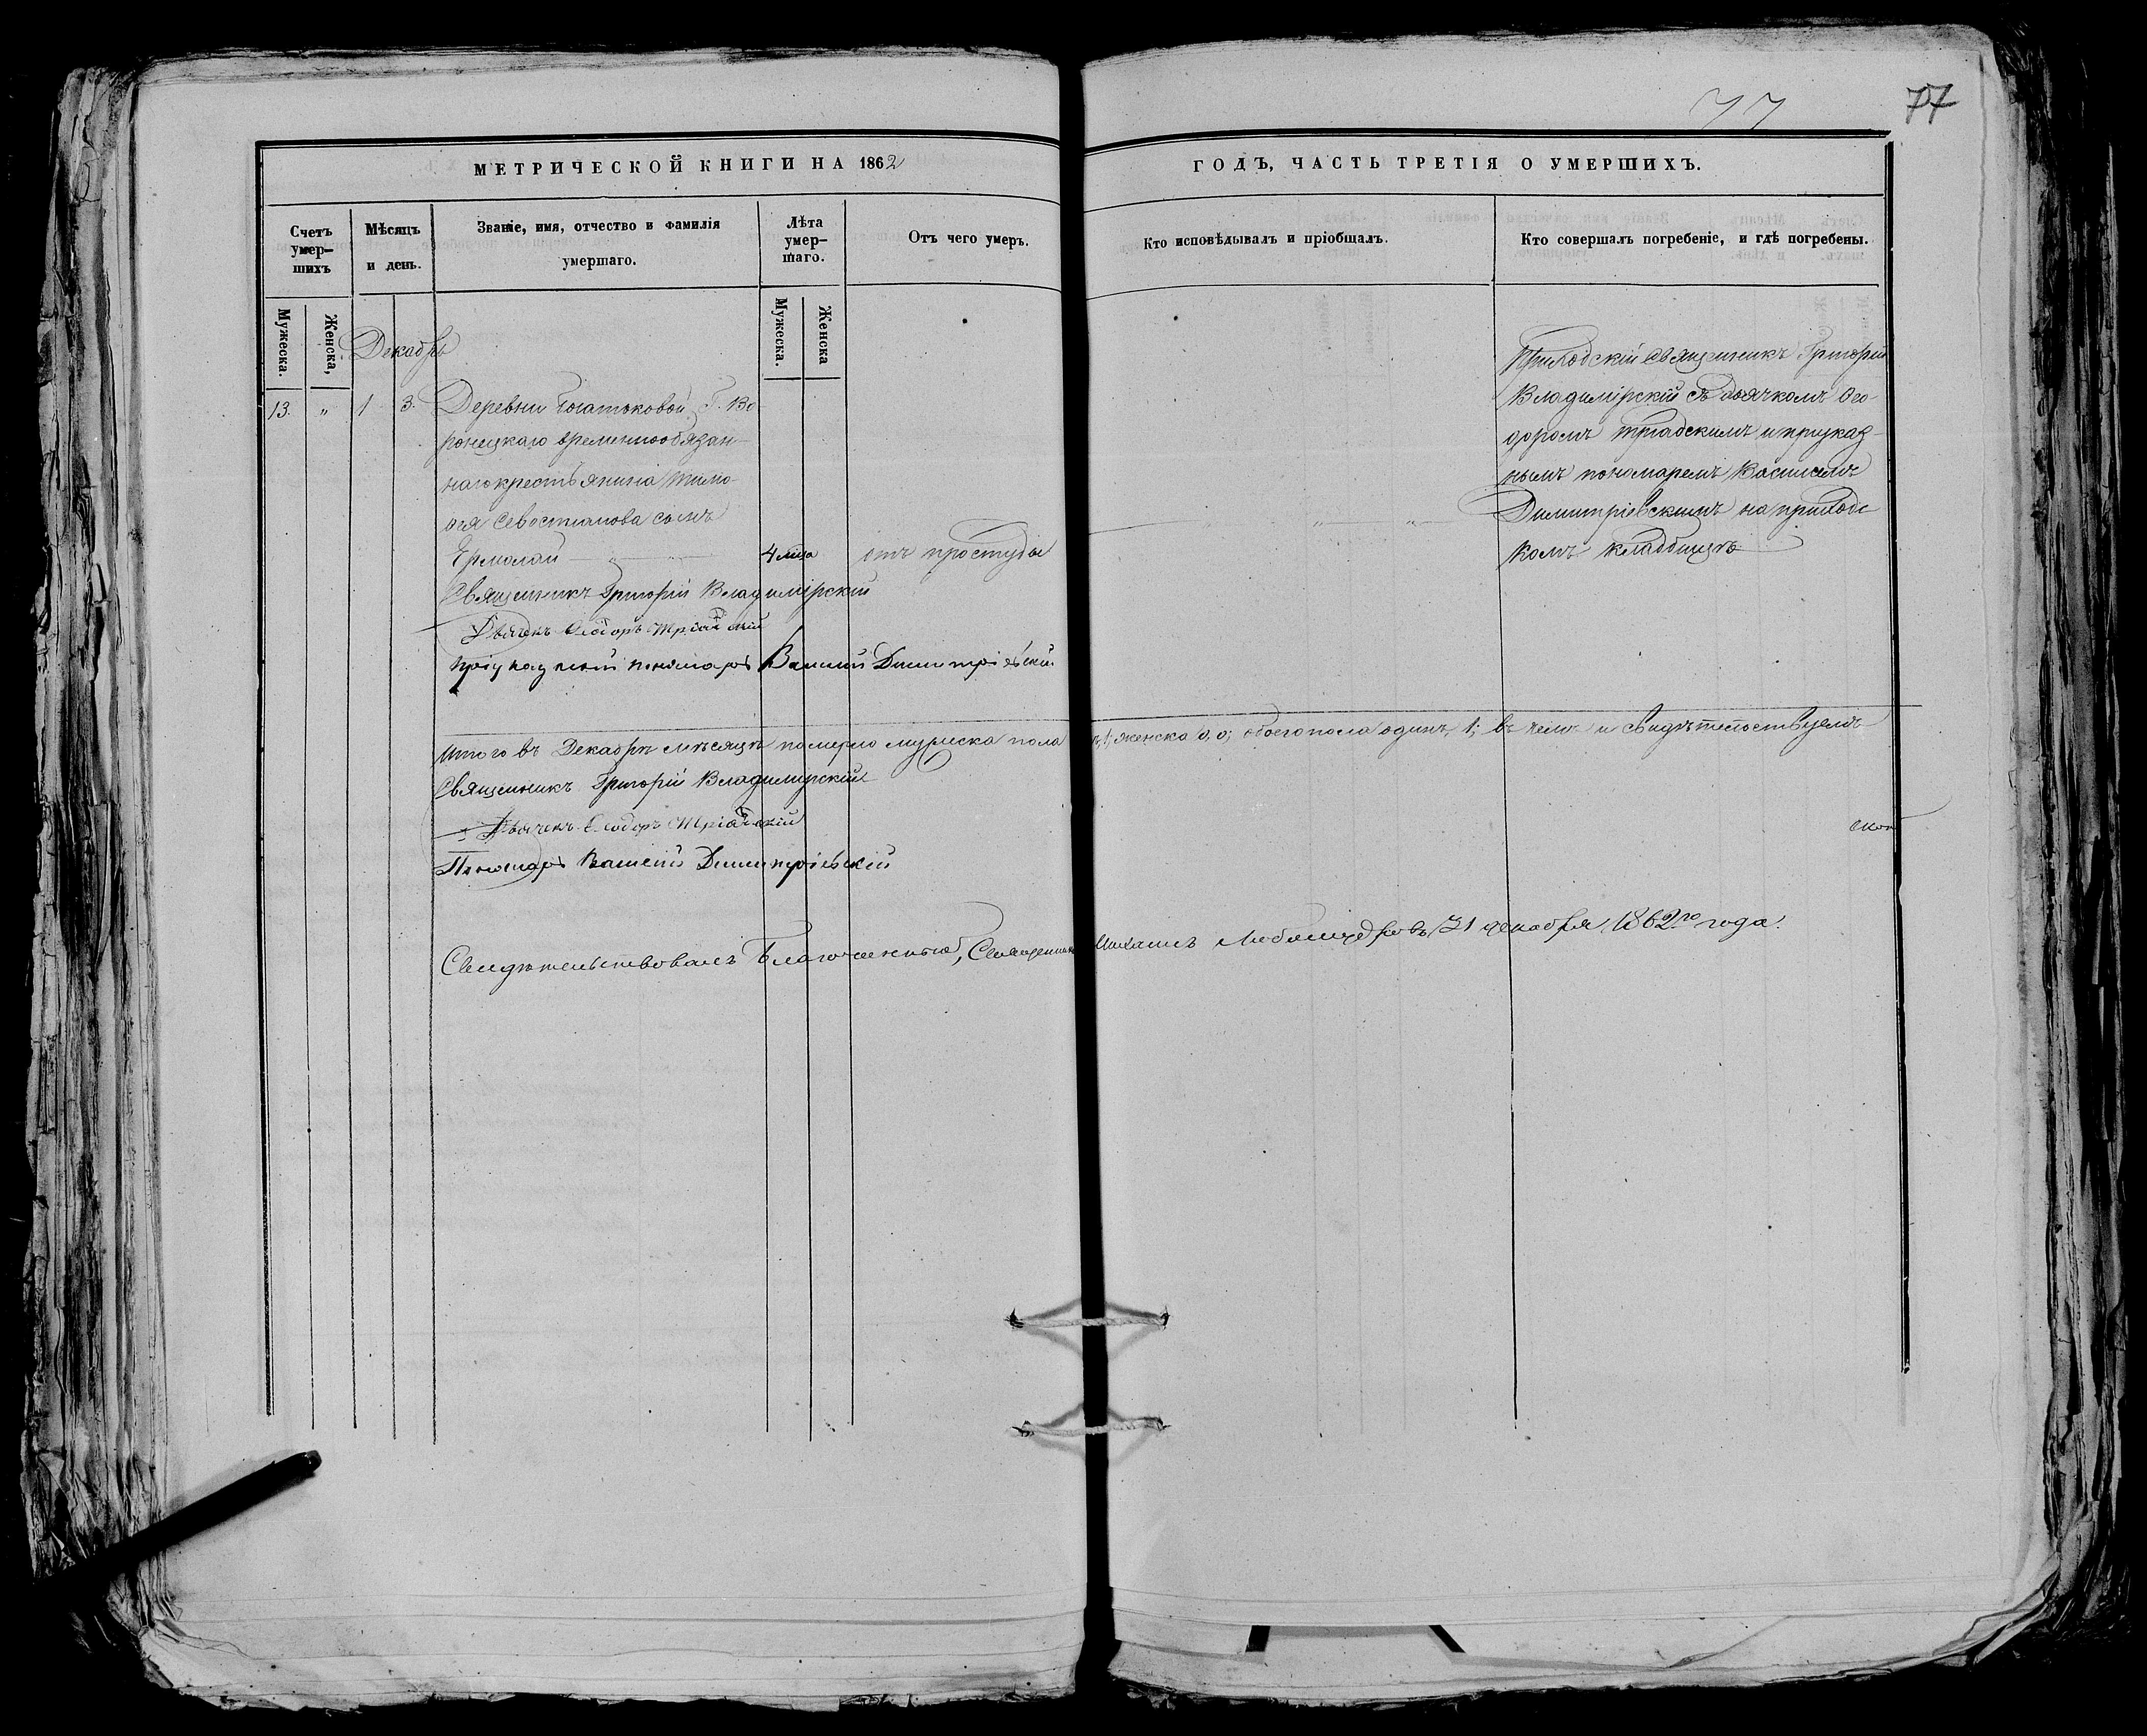 77
77
МЕТРИЧЕСКОЙ КНИГИ НА 1862
ГОДЪ, ЧАСТЬ ТРЕТІЯ О УМЕРШИХЪ.
Счетъ умер-шихъ
Мѣсяцъ и день.
Званіе, имя, отчество и фамилія умершаго.
Лѣта умер-шаго.
Отъ чего умеръ.
Кто исповѣдывалъ и пріобщалъ.
Кто совершалъ погребеніе, и гдѣ погребены.
Мужеска.
Женска,
Мужеска.
Женска
Декабрь
13. " 1 3. Деревни Г. Во
ронецкаго временнообязан-
наго крестьянина Тимо-
ѳея Севостианова сынъ
Ермолай 4 мца отъ простуды
Приходскій священникъ Григорій
Владимірскій съ дьячкомъ Ѳео-
доромъ Тріадскимъ и приуказ-
нымъ пономаремъ Василіемъ
Димитріевскимъ на приходс
комъ кладбищѣ
Священникъ Григорій Владимірскій
Дьячекъ Ѳеодоръ Тріадскій
пономарь Василій Димитріевскій
Итого въ Декабрѣ мѣсяцѣ померло мужеска пола 1; женска 0, 0; обоего пола одинъ, 1; въ чемъ и свидѣтельствуемъ
Священникъ Григорій Владимірскій
Дьячекъ Ѳеодоръ Тріадскій
Пономарь Василій Димитріевскій
Свидѣтельствовалъ Благочинный, Священникъ Михаилъ Любомудровъ 31 декабря 1862го года.